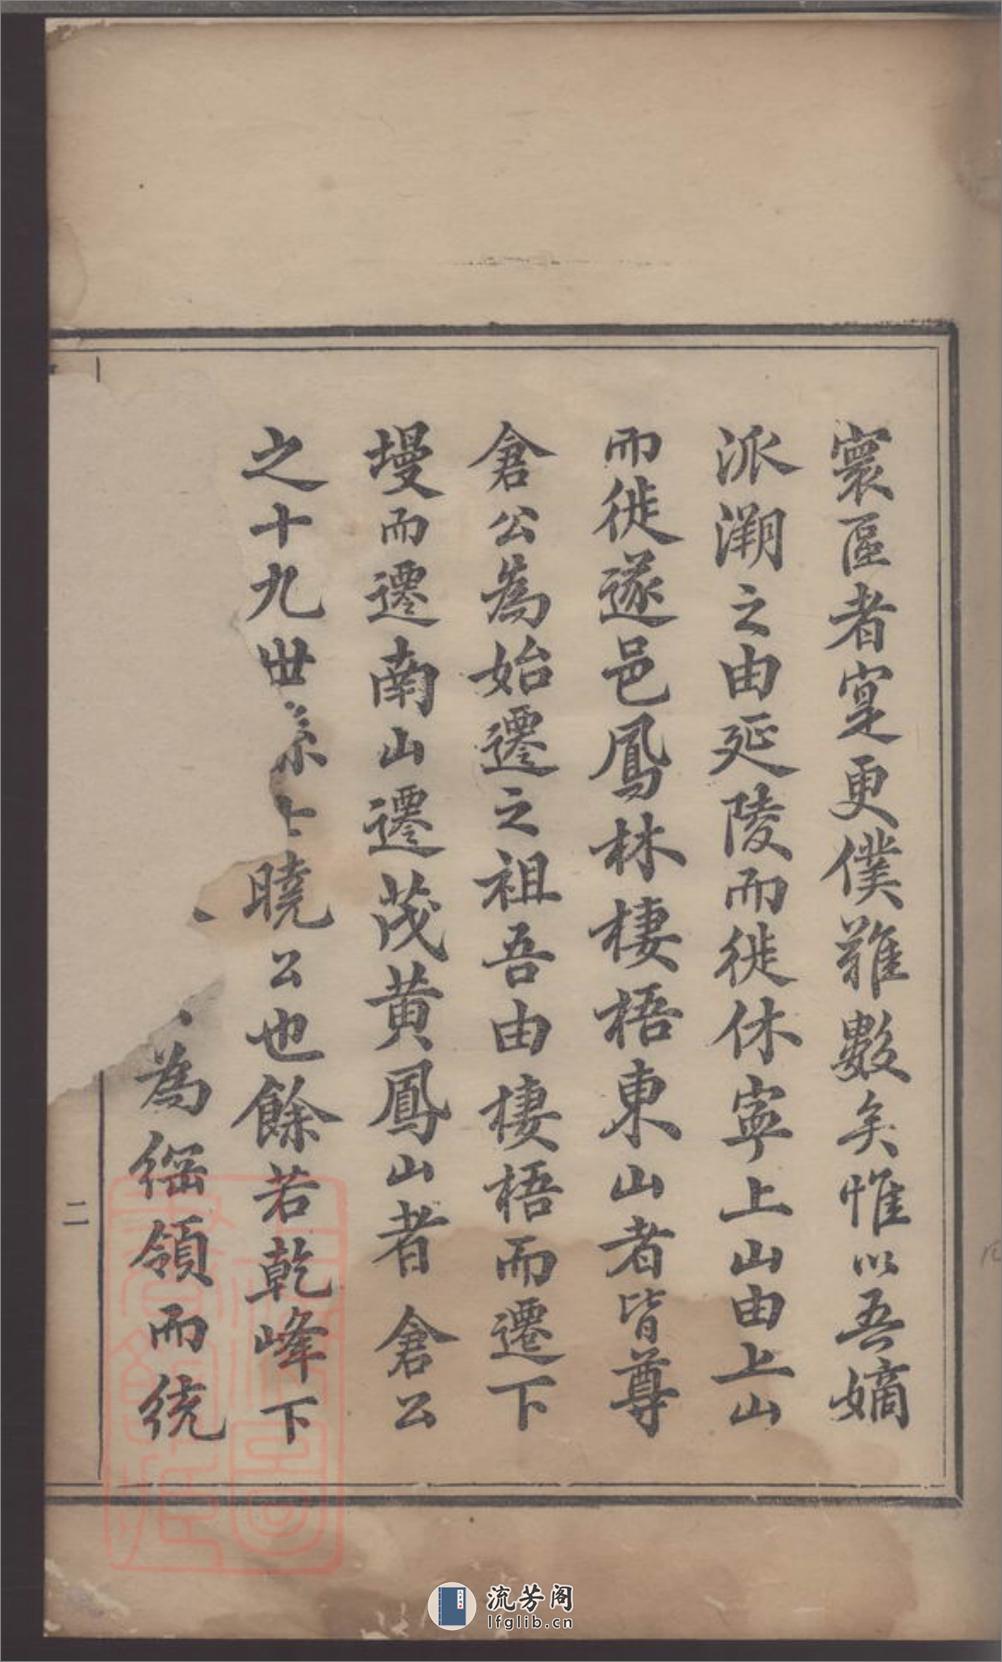 寰區者寔更僕難數矣惟以吾嫡
派溯之由延陵而徙休寧上山由上山
而徙遂邑鳳林棲梧東山者皆尊
倉公為始遷之祖吾由棲梧而遷下
墁而遷南山遷茂黄鳳山者倉公
之十九世孫士曉公也餘若乾峰下
為綱領而統
二
流芳阁
lfglib.cn